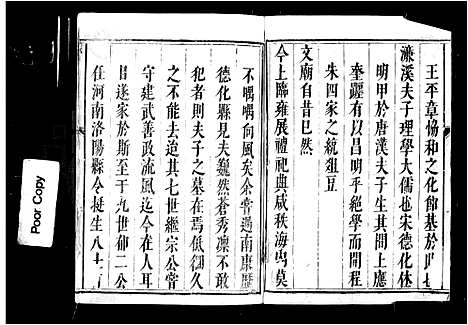 王平章協和之化節基於門
濂溪夫子理學大儒也宋德化休
明甲於唐漢夫子生其間上應
奎躔有以昌明乎絕學而開程
朱四家之一統俎豆
文廟自昔已然
今上臨雍展禮祀典咸秩海內莫
不喁喁向風矣余嘗過南康歷
德化縣見夫巍然蒼秀凜不敢
犯者則夫子之墓在焉低徊久
之不能去迨其七世繼宗公嘗
守建武善政流風迄今在人耳
目遂家於斯至于九世郁二公
任河南洛陽縣令挺生八十
Poor Copy